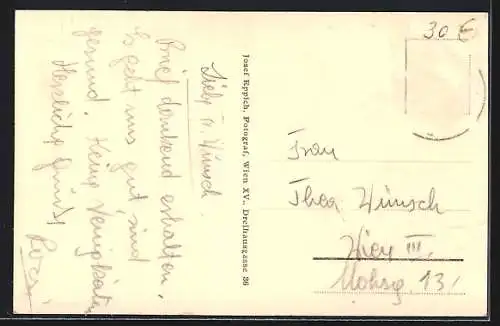 30 €
Liebe Fr. Wünsch.
Brief dankend erhalten.
Es geht uns gut, sind
gesund. Keine Neuigkeiten
Herzliche Grüße
Josef Eppich, Fotograf, Wien XV., Dreihausgasse 36
Frau
Thea Wünsch
Wien III.
Mohsg. 13/